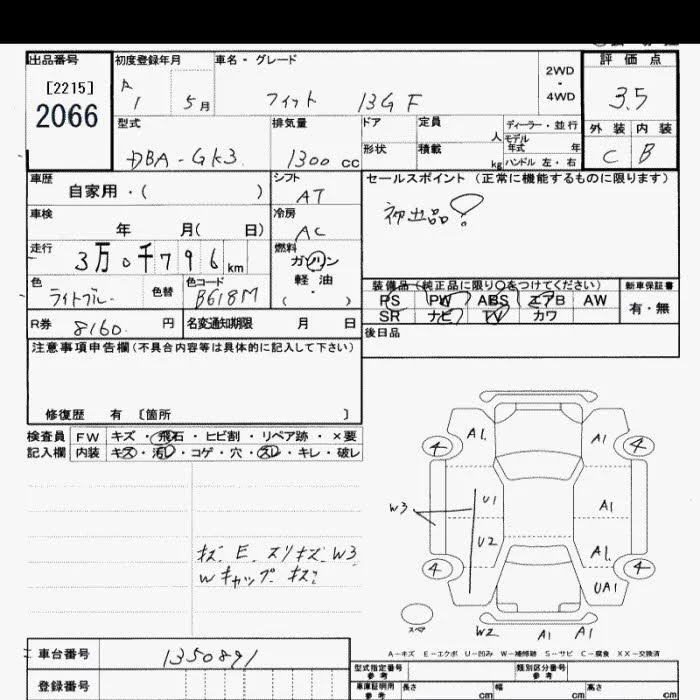 出品番号
[2215]
2066
初度登録年月
1 5月
車名・グレード
フィット 13G F
2WD
・
4WD
評価点
3.5
外装 内装
C B
型式
DBA-GK3
排気量
1300 cc
ドア
形状
定員
人
積載
kg
ディーラー・並行
モデル
年式 年
ハンドル 左・右
車歴
自家用・( )
シフト
AT
セールスポイント(正常に機能するものに限ります)
初出品!
車検
年 月( 日)
冷房
AC
走行
3万0千796km
燃料
ガソリン
軽油
( ・ )
色
ライトブルー
色替
色コード
B618M
装備品(純正品に限り○をつけてください)
PS PW ABS エアB AW
SR ナビ TV カワ
新車保証書
有・無
R券
8160 円
名変通知期限 月 日
後日品
注意事項申告欄(不具合内容等は具体的に記入して下さい)
修復歴 有 〔箇所 〕
検査員
記入欄
FW キズ・飛石・ヒビ割・リペア跡・×要
内装 キズ・汚レ・コゲ・穴・スレ・キレ・破レ
キズ. E. スリキズ. W3
Wキャップ キズ
A1. A1
4 4
W3 U1 A1
U2 A1.
4 4
UA1
スペア
W2 A1 A1
A-キズ E-エクボ U-凹み W-補修跡 S-サビ C-腐食 XX-交換済
車台番号
1350891
登録番号
型式指定番号
類別区分番号
車庫証明用
参考
長さ cm
幅 cm
高さ cm